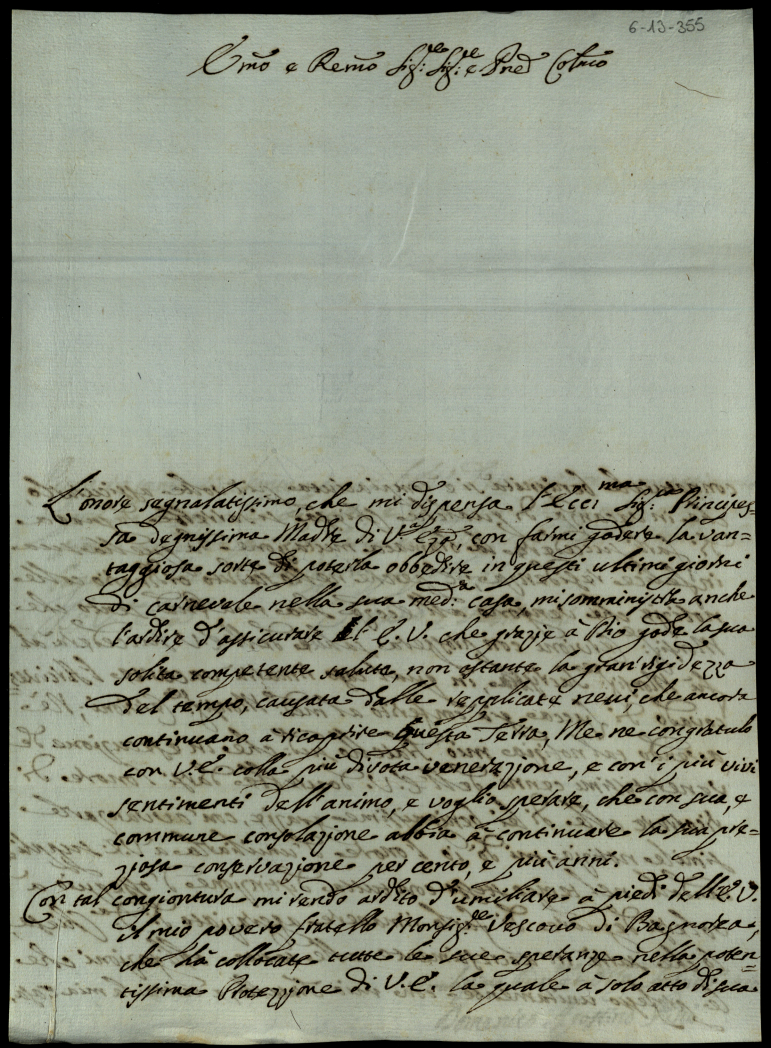 6-13-355
Emo e Remo Sig.r Sig.r e Pred Colmo
L'onore segnalatissimo, che mi dispensa l'Ecc.ma Sig.ra Principes=
sa degnissima Madre di V.ra Eza, con farmi godere la van=
taggiosa sorte di poterla obbedire in questi ultimi giorni
di carnevale nella sua med.a casa, mi somministra anche
l'ardire d'assicurare l'E. V. che grazie à Dio gode la sua
solita competente salute, non ostante la gran rigidezza
del tempo, causata dalle replicate nevi, che ancora
continuano à ricoprire questa Terra, Me ne congratulo
con V.E. colla più divota venerazione, e con i più vivi
sentimenti dell'animo, e voglio sperare, che con sua, e
commune consolazione abbia à continuare la sua pre=
ziosa conservazione per cento, e più anni.
Con tal congiontura mi rendo ardito d'umiliare à piedi dell'E.V.
il mio povero fratello Monsig.re Vescovo di Bagnorea,
che hà collocate tutte le sue speranze nella poten=
tissima Protezzione di V.E. la quale à solo atto di sua